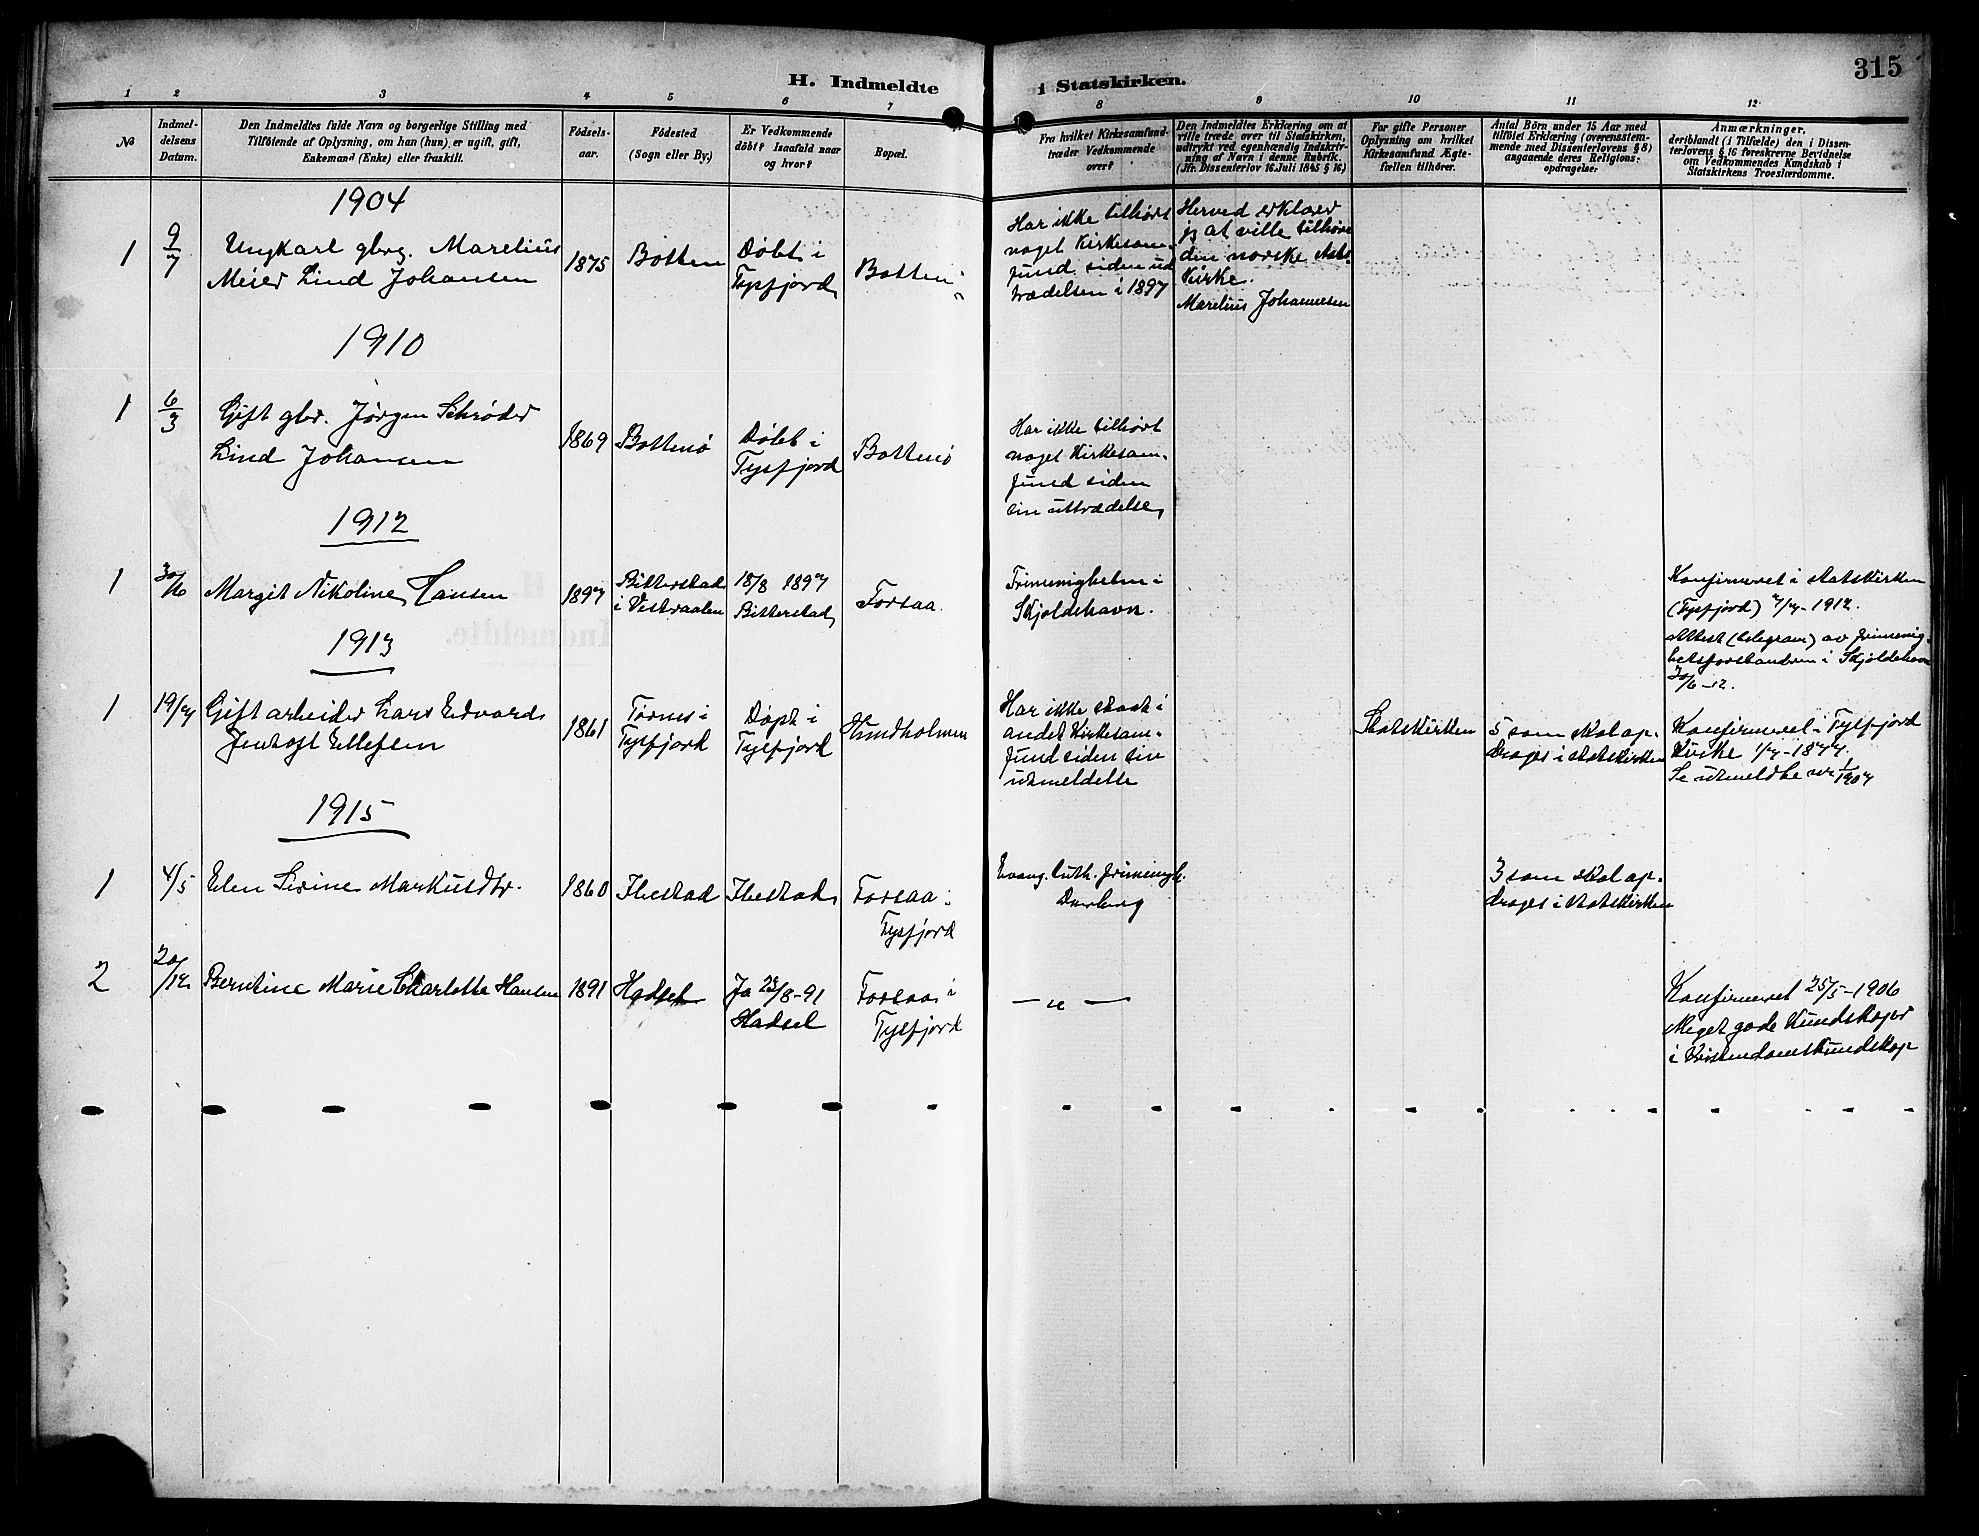 H. Indmeldte i Statskirken.
315
1 2 3 4 5 6 7 8 9 10 11 12
№
Indmel-
delsens
Datum.
Den Indmeldtes fulde Navn og borgerlige Stilling med
Tilföiende af Oplysning, om han (hun) er ugift, gift,
Enkemand (Enke) eller fraskilt.
Födsels-
aar.
Födested
(Sogn eller By.)
Er Vedkommende
döbt? Isaafald naar
og hvor?
Bopæl.
Fra hvilket Kirkesamfund
træder Vedkommende
over?
Den Indmeldtes Erklæring om at
ville træde over til Statskirken,
udtrykt ved egenhændig Indskriv-
ning af Navn i denne Rubrik.
(Jfr. Dissenterlov 16. Juli 1845 § 16)
For gifte Personer
Oplysning om hvilket
Kirkesamfund Ægte-
fællen tilhörer.
Antal Börn under 15 Aar med
tilföiet Erklæring (overensstem-
mende med Dissenterlovens § 8)
angaaende deres Religions-
opdragelse.
Anmærkninger,
deriblandt (i Tilfælde) den i Dissen-
terlovens § 16 foreskrevne Bevidnelse
om Vedkommendes Kundskab i
Statskirkens Troeslærdomme.
1904
1
9/7
Ungkarl gbrg. Marelius
Meier Lind Johansen
1875
Botten
Døbt i
Tysfjord
Botten
Har ikke tilhørt
noget Kirkesam-
fund siden ud
trædelsen i 1897
Herved erklærer
jeg at ville tilhøre
den norske Stats-
kirke.
Marelius Johannesen
1910
1
6/3
Gift gbr. Jørgen Schrøder
Lind Johansen
1869
Bottenø
Døbt i
Tysfjord
Bottenø
Har ikke tilhørt
noget Kirkesam-
fund siden
sin uttrædelse
1912
1
30/6
Margit Nikoline Hansen
1897
Bitterstad
i Vestraalen
18/8 1897
Bitterstad
Forsaa
Frimenigheten i
Skjoldehavn.
Konfirmeret i statskirken
(Tysfjord) 7/7-1912.
Attest (telegram) av frimenig-
hetsforstanderen i Skjoldehavn
30/6-12.
1913
1
19/7
Gift arbeider Lars Edvard
Jentoft Ellefsen
1861
Tørnes i
Tysfjord
Døpt i
Tysfjord
Hundholmen
Har ikke staat i
andet Kirkesam-
fund siden sin
utmeldelse
Statskirken
5 som skal op-
drages i statskirken
Konfirmeret i Tysfjord
Kirke 1/7-1877.
Se utmeldte nr 1/1907
1915
1
4/5
Elen Serine Markusdtr.
1860
Ibestad
Ibestad
Forsaa i
Tysfjord
Evang. luth. frimenigh.
3 som skal op-
drages i statskirken
2
20/12
Berntine Marie Charlotte Hansen
1891
Hadsel
Ja 23/8-91
Hadsel
Forsaa i
Tysfjord
— " —
Konfirmeret 25/5-1906
Meget gode Kundskaper
i Kristendomskundskap